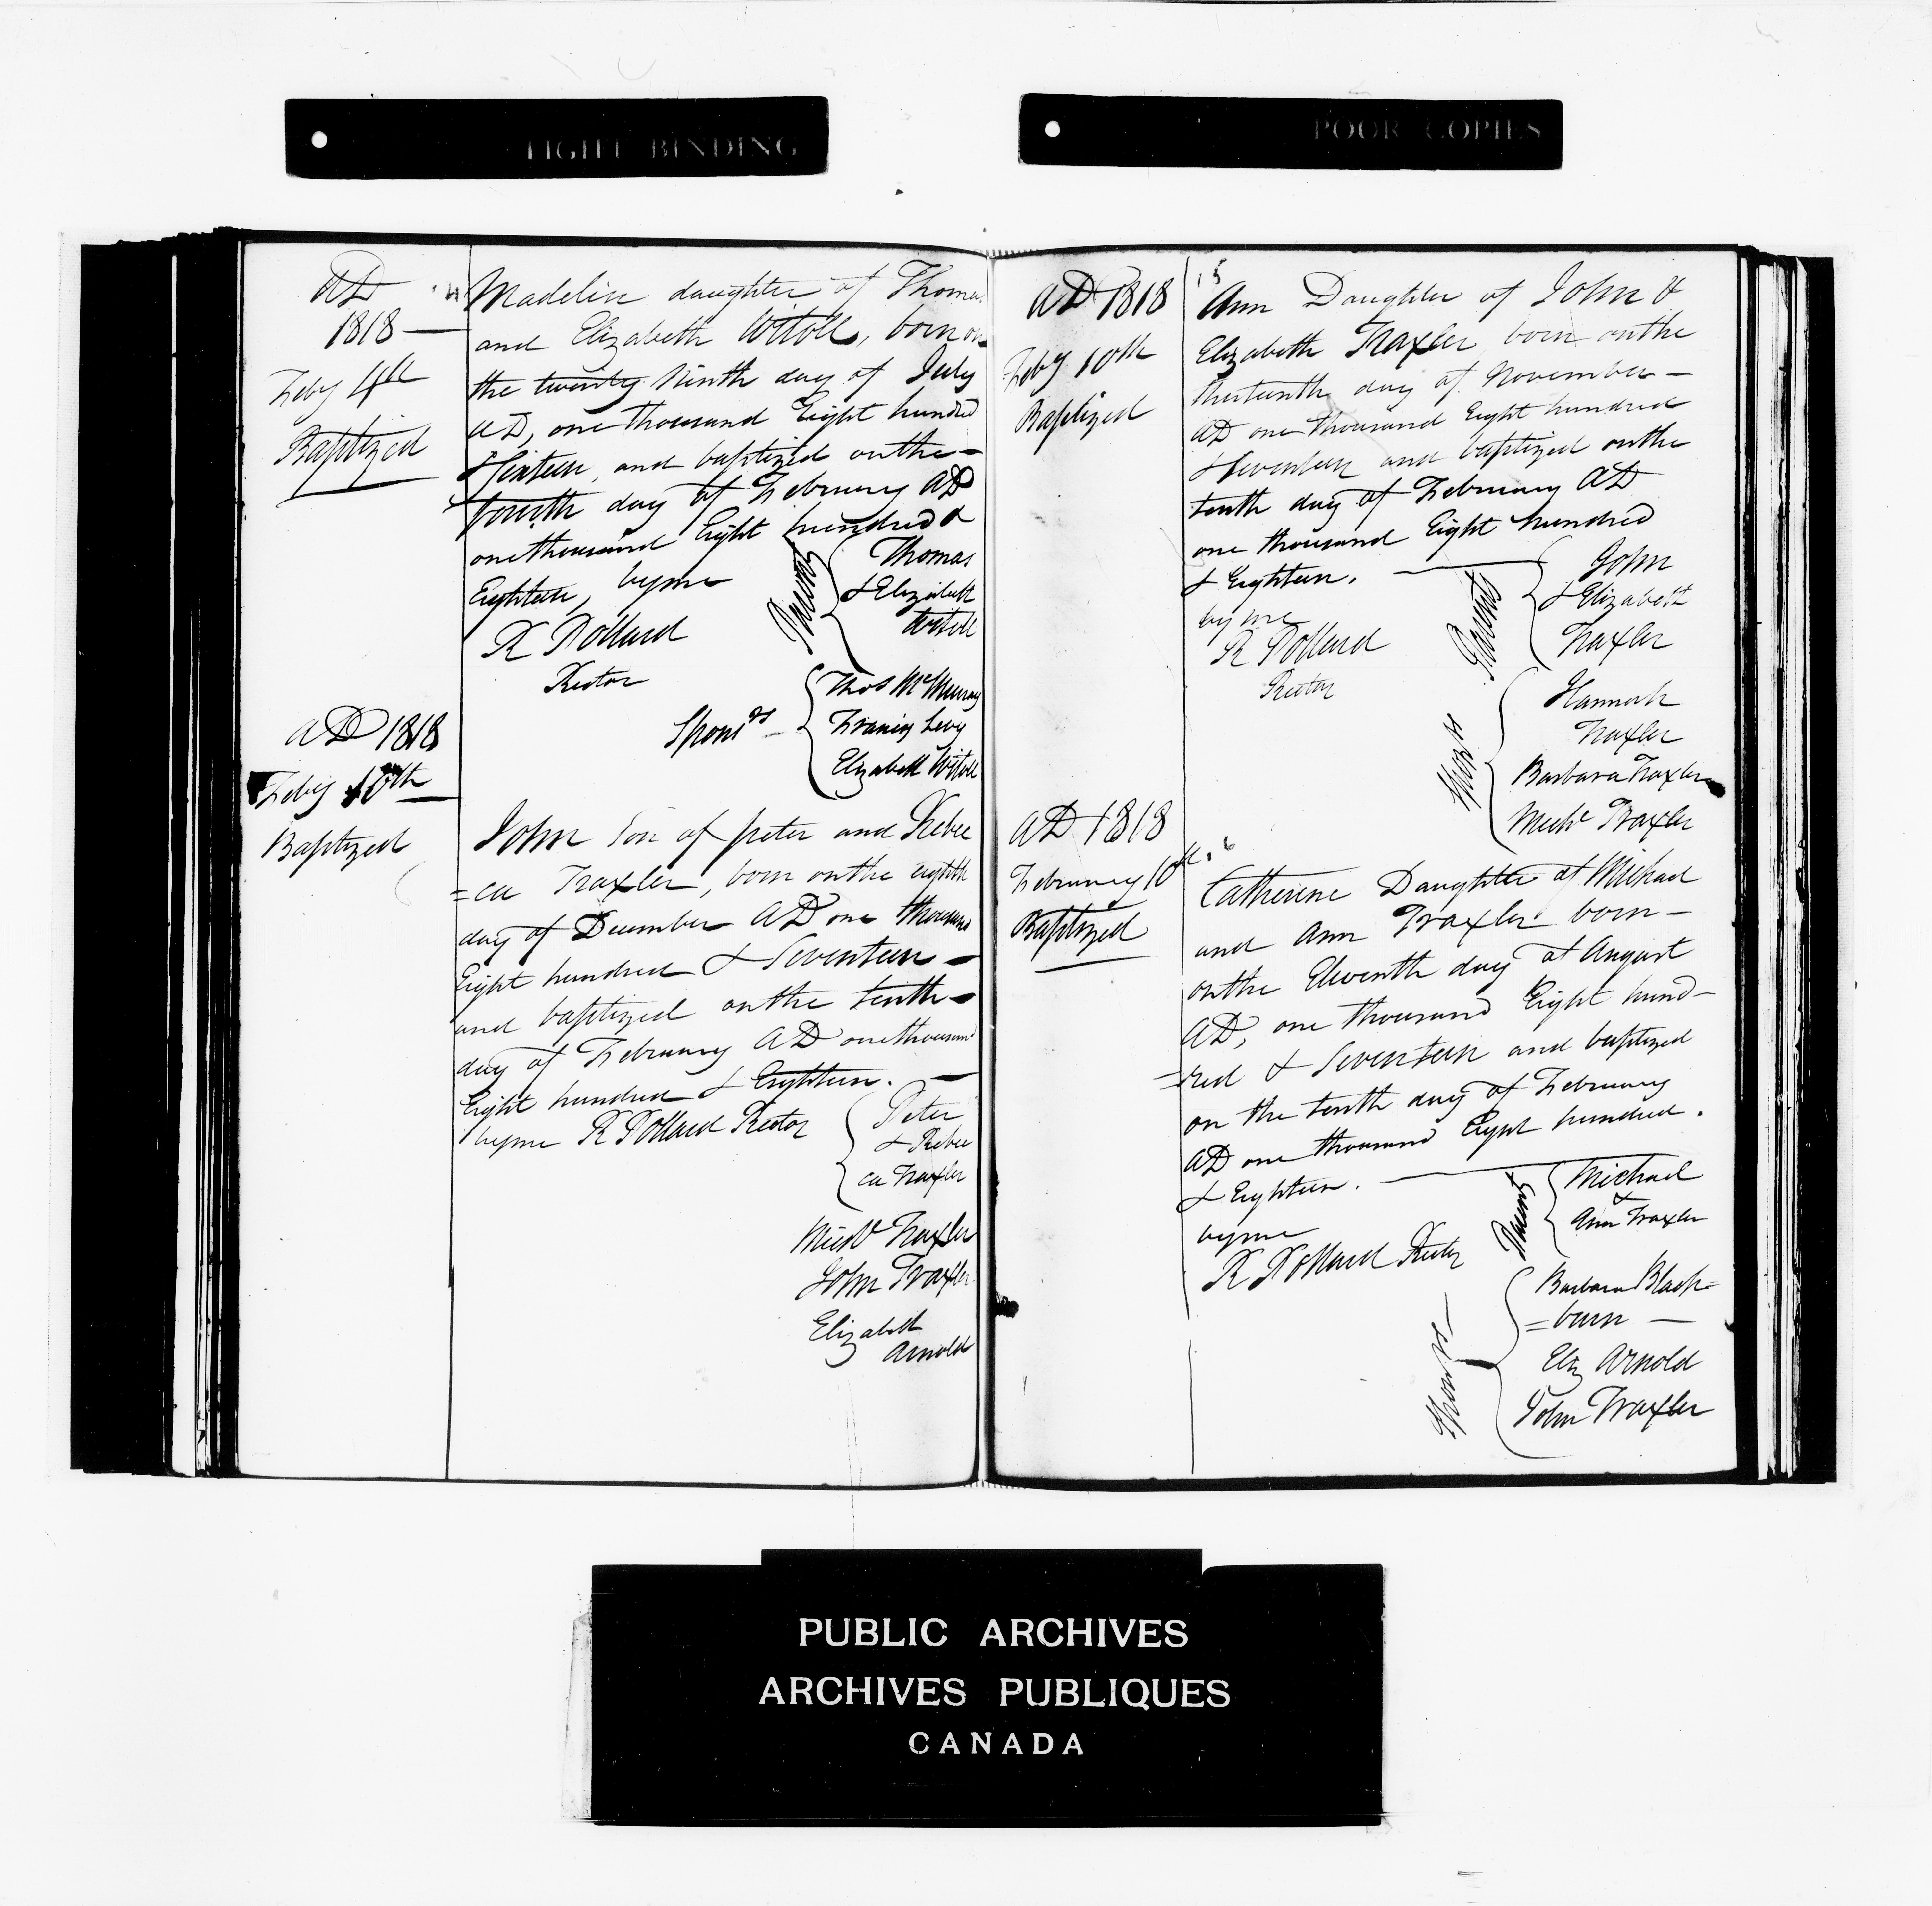 TIGHT BINDING
POOR COPIES
AD
1818 —
Feby 4th
Baptized
Madelin daughter of Thomas
and Elizabeth, born on
the twenty Ninth day of July
AD, one thousand Eight hundred
& Sixteen, and baptized on the —
fourth day of February AD
one thousand Eight hundred &
Eighteen, by me
R Pollard
Rector
Parents
Thomas
& Elizabeth
Spons rs —
Thos McMurray
Francis Levy
Elizabeth
AD 1818
Feby 10th —
Baptized
John Son of peter and Rebec
=ca Traxler, born on the eighth
day of December AD one thousand
Eight hundred & Seventeen —
and baptized on the tenth —
day of February AD one thousand
Eight hundred & Eighteen. —
by me R Pollard Rector
Peter
& Rebec
ca Traxler
Michl Traxler
John Traxler
Elizabeth
Arnold
AD 1818
Feby 10th
Baptized
15
Ann Daughter of John &
Elizabeth Traxler born on the
thirteenth day of November —
AD one thousand Eight hundred
& Seventeen and baptized on the
tenth day of February AD
one thousand Eight hundred
& Eighteen. —
by me
R Pollard
Rector
Parents
John
& Elizabeth
Traxler
Spors
Hannah
Traxler
Barbara Traxler
Traxler
AD 1818
February 10th
Baptized
Catherine Daughter of Michael
and Ann Traxler born —
on the Eleventh day of August
AD, one thousand Eight hund—
=red & Seventeen and baptized
on the tenth day of February
AD one thousand Eight hundred.
& Eighteen. —
by me
R Pollard Rector
Parents
Michael
&
Ann Traxler
Barbara Black=
=burn —
Eliz Arnold
John Traxler
PUBLIC ARCHIVES
ARCHIVES PUBLIQUES
CANADA